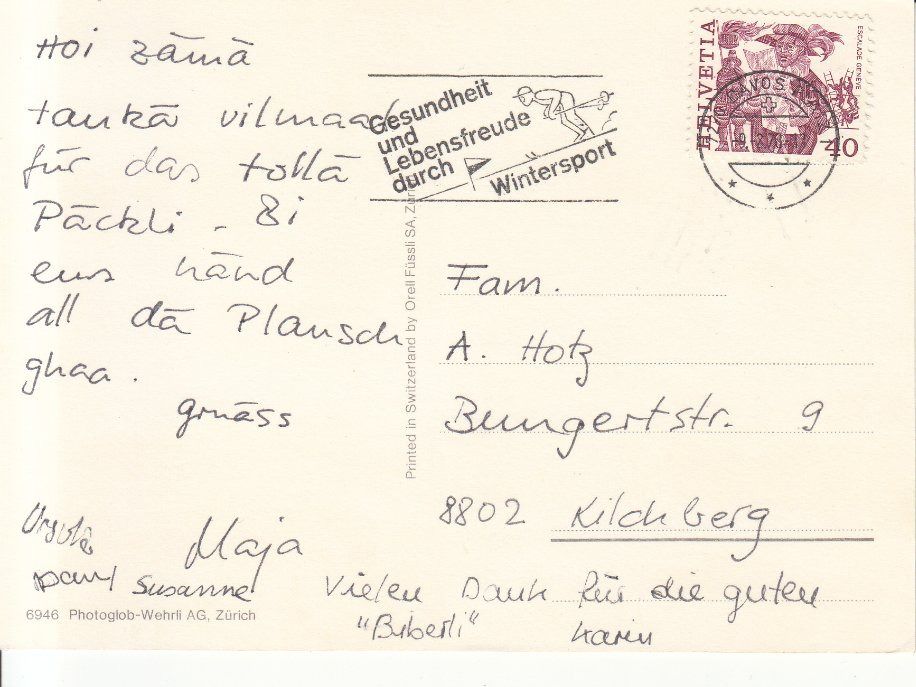 Hoi zämä
tankä vilmaal
für das tollä
Päckli. Bi
eus händ
all dä Plausch
ghaa.
grüäss
Ursula
Maja
Susanne
6946 Photoglob-Wehrli AG, Zürich
Gesundheit
und
Lebensfreude
durch
Wintersport
HELVETIA
ESCALADE GENÈVE
40
Printed in Switzerland by Orell Füssli SA, Züri
Fam.
A. Hotz
Bungertstr. 9
8802 Kilchberg
Vielen Dank für die guten
"Biberli"
Karin